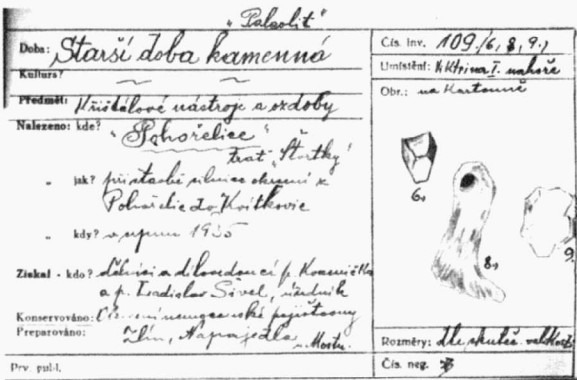 „Paleolit“
Doba: Starší doba kamenná
Kultura?
Předmět: Křišťálové nástroje a ozdoby
Nalezeno: kde? „Pohořelice“
trať „Štortky“
„ jak? při stavbě silnice okresní z
Pohořelic do Kvítkovic
„ kdy? v srpnu 1935
Získal - kdo? dělníci a dílovedoucí p.
a p. Ladislav Sivel, úředník
Konservováno: nemocenské pojišťovny
Preparováno: Zlín, Napajedla
Prv. publ.
Čís. inv. 109./6, 8, 9.,
Umístění: Vitrina I. nahoře
Obr.: na Kartonně
6,
8,
9.
Rozměry: dle skuteč. velikosti
Čís. neg.